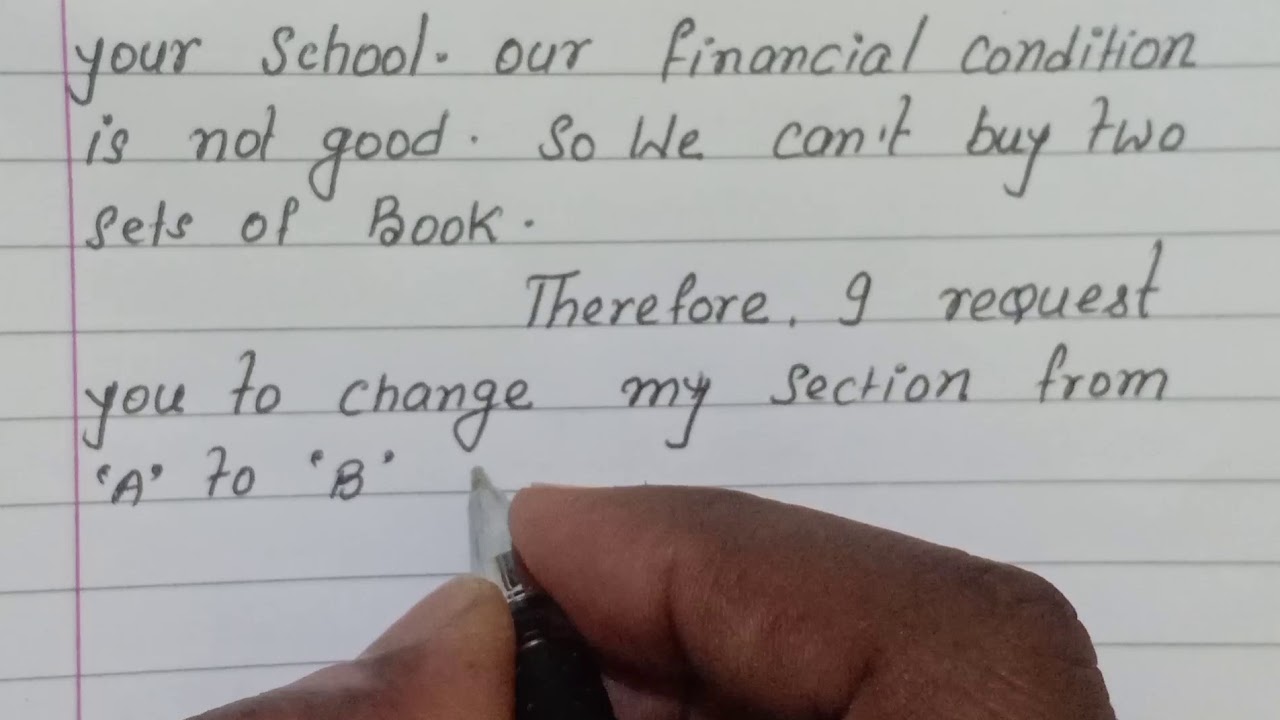 your School. our financial condition
is not good. So We can't buy two
sets of Book.
Therefore, I request
you to change my section from
'A' to 'B'